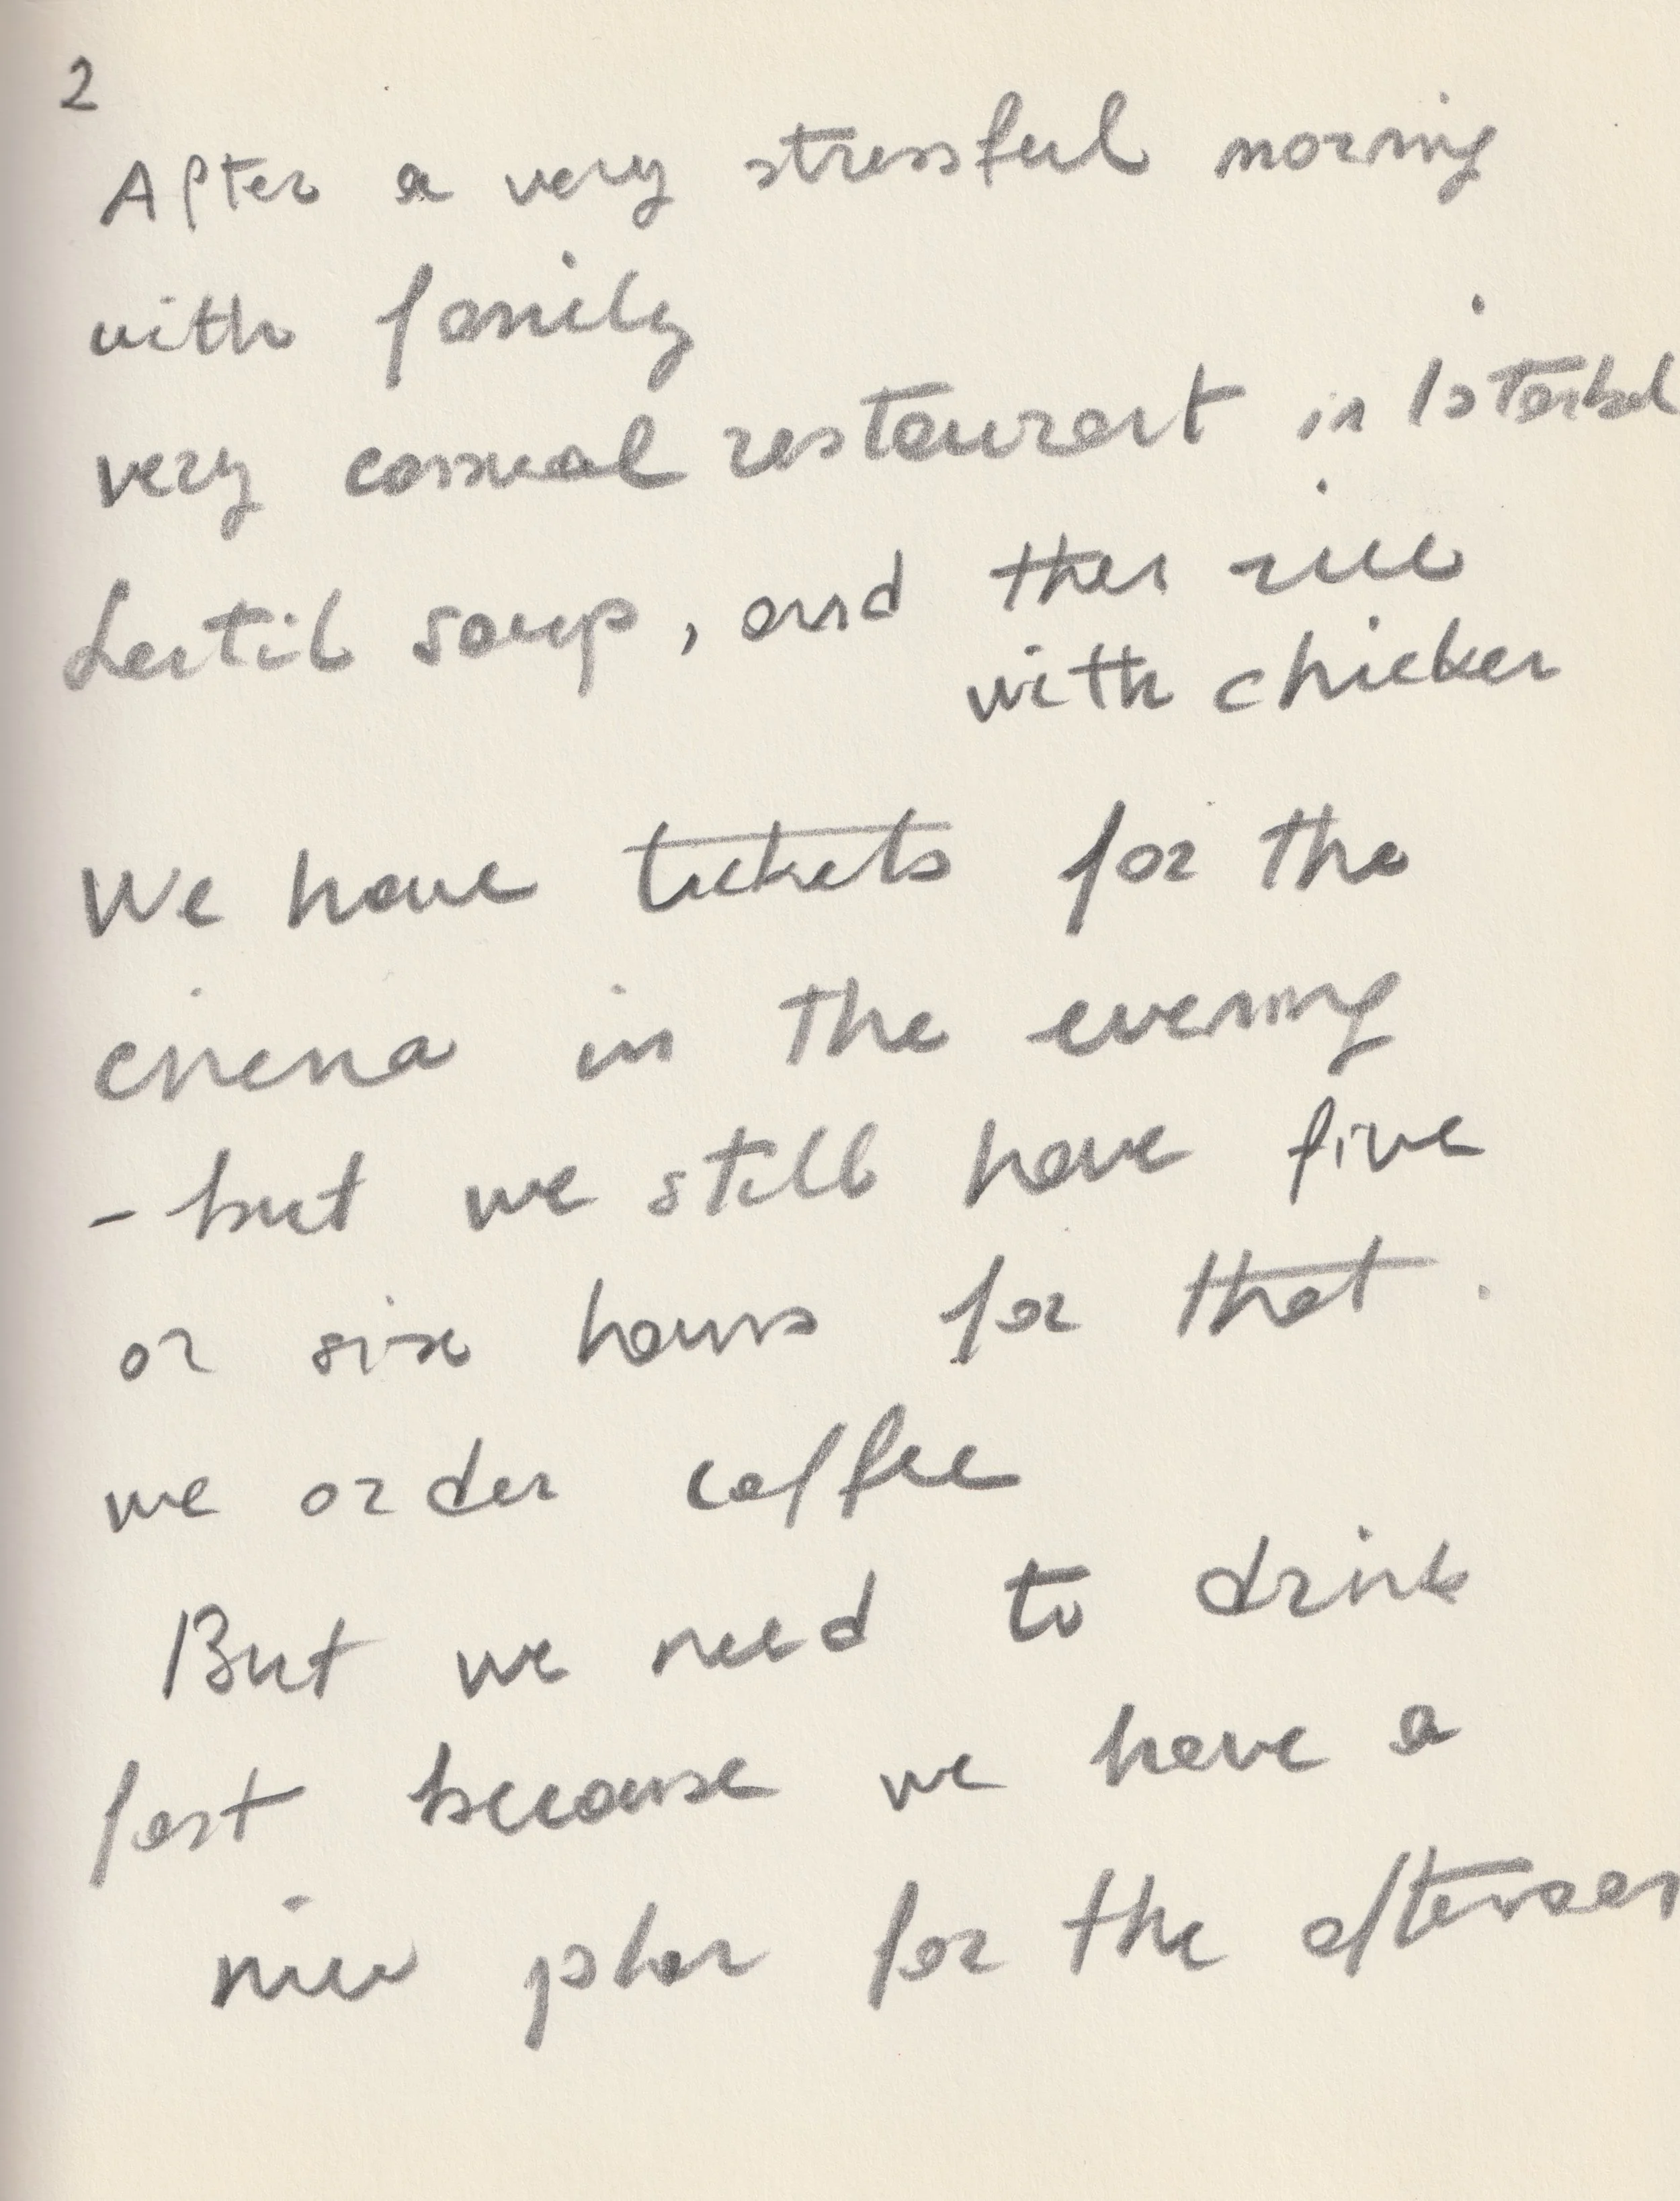 2
After a very stressful morning
with family
very casual restaurant in Istanbul
Lentil soup, and then rice
with chicken
We have tickets for the
cinema in the evening
- but we still have five
or six hours for that.
we order coffee
But we need to drink
fast because we have a
nice plan for the afternoon